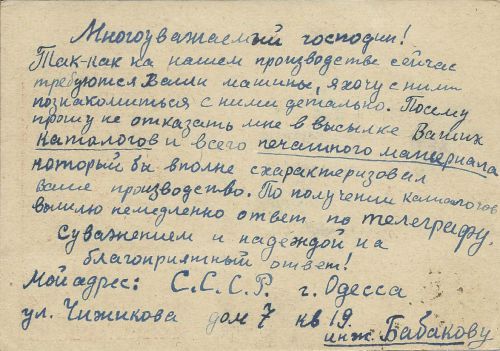 Многоуважаемый господин!
Так-как на нашем производстве сейчас
требуются Ваши машины, я хочу с ними
познакомиться с ними детально. Посему
прошу не отказать мне в высылке Ваших
каталогов и всего печатного материала
который бы вполне схарактеризовал
Ваше производство. По получении каталогов
вышлю немедленно ответ по телеграфу.
С уважением и надеждой на
благоприятный ответ!
Мой адрес: С.С.С.Р. г. Одесса
ул. Чижикова дом 7 кв 19.
инж. Бабакову